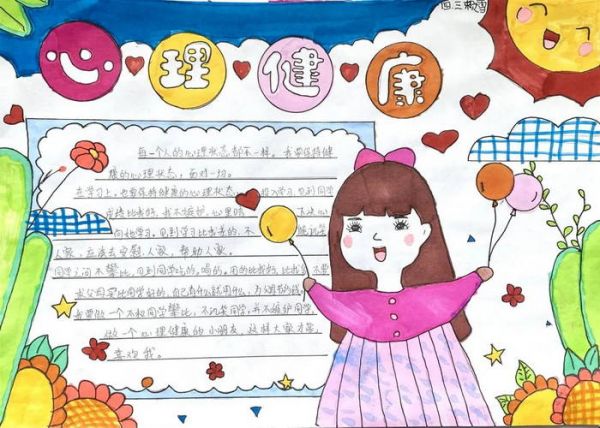 四.三
心理健康
每一个人的心理状态都不一样。我要保持健
康的心理状态，面对一切。
在学习上，也要保持健康的心理状态，投入学习，见到同学
成绩比我好，我不嫉妒，心里暗 下决心
向他学习。见到学习比我差的，不
人家，应该去安慰人家，帮助人家。
同学之间不攀比，见到同学吃的，喝的，用的比我好，不要
求父母要比同学好的，自己有什么就用什么，
我要做一个不和同学攀比，不讥笑同学，并不嫉妒同学，
做一个心理健康的小朋友，这样大家才能
喜欢我。